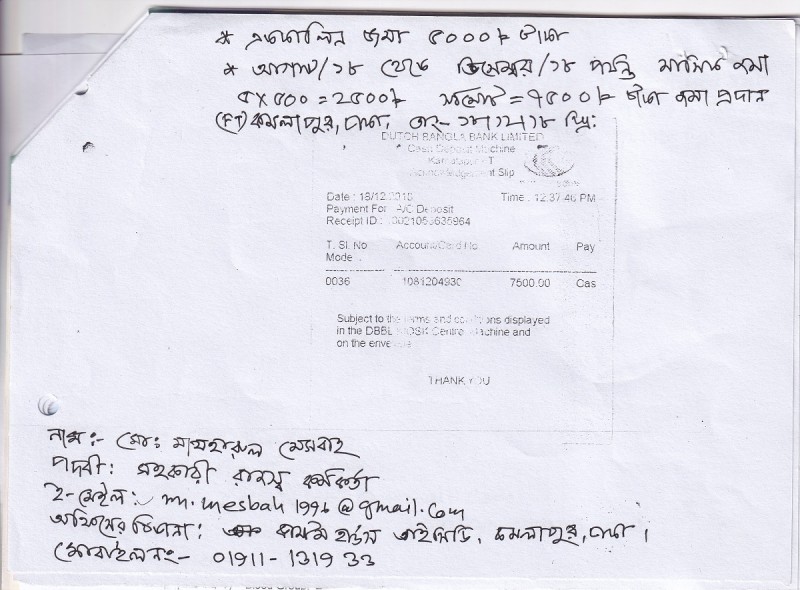 * এককালিন জমা ৫০০০/- টাকা
* আগস্ট/১৮ থেকে ডিসেম্বর/১৮ পর্যন্ত মাসিক জমা
৫x৫০০=২৫০০/- সর্বমোট=৭৫০০/- টাকা জমা প্রদান
(FT) কমলাপুর, ঢাকা, তাং- ১৮/১২/১৮ খ্রি:
DUTCH BANGLA BANK LIMITED
Cash Deposit Machine
Kamalapur T
Acknowledgement Slip
Date : 18/12/2018 Time : 12:37:46 PM
Payment For A/C Deposit
Receipt ID : 3021053635964
T. Sl. No Account/Card No. Amount Pay
Mode
0036 1081204930 7500.00 Cas
Subject to the terms and conditions displayed
in the DBBL KIOSK Centre Machine and
on the envelope
THANK YOU
নাম :- মোঃ মাযহারুল মেসবাহ
পদবী : সহকারী রাজস্ব কর্মকর্তা
ই-মেইল : m.mesbah1996@gmail.com
অফিসের ঠিকানা : কাস্টম হাউস আইসিডি, কমলাপুর, ঢাকা ।
মোবাইল নং- 01911-131933